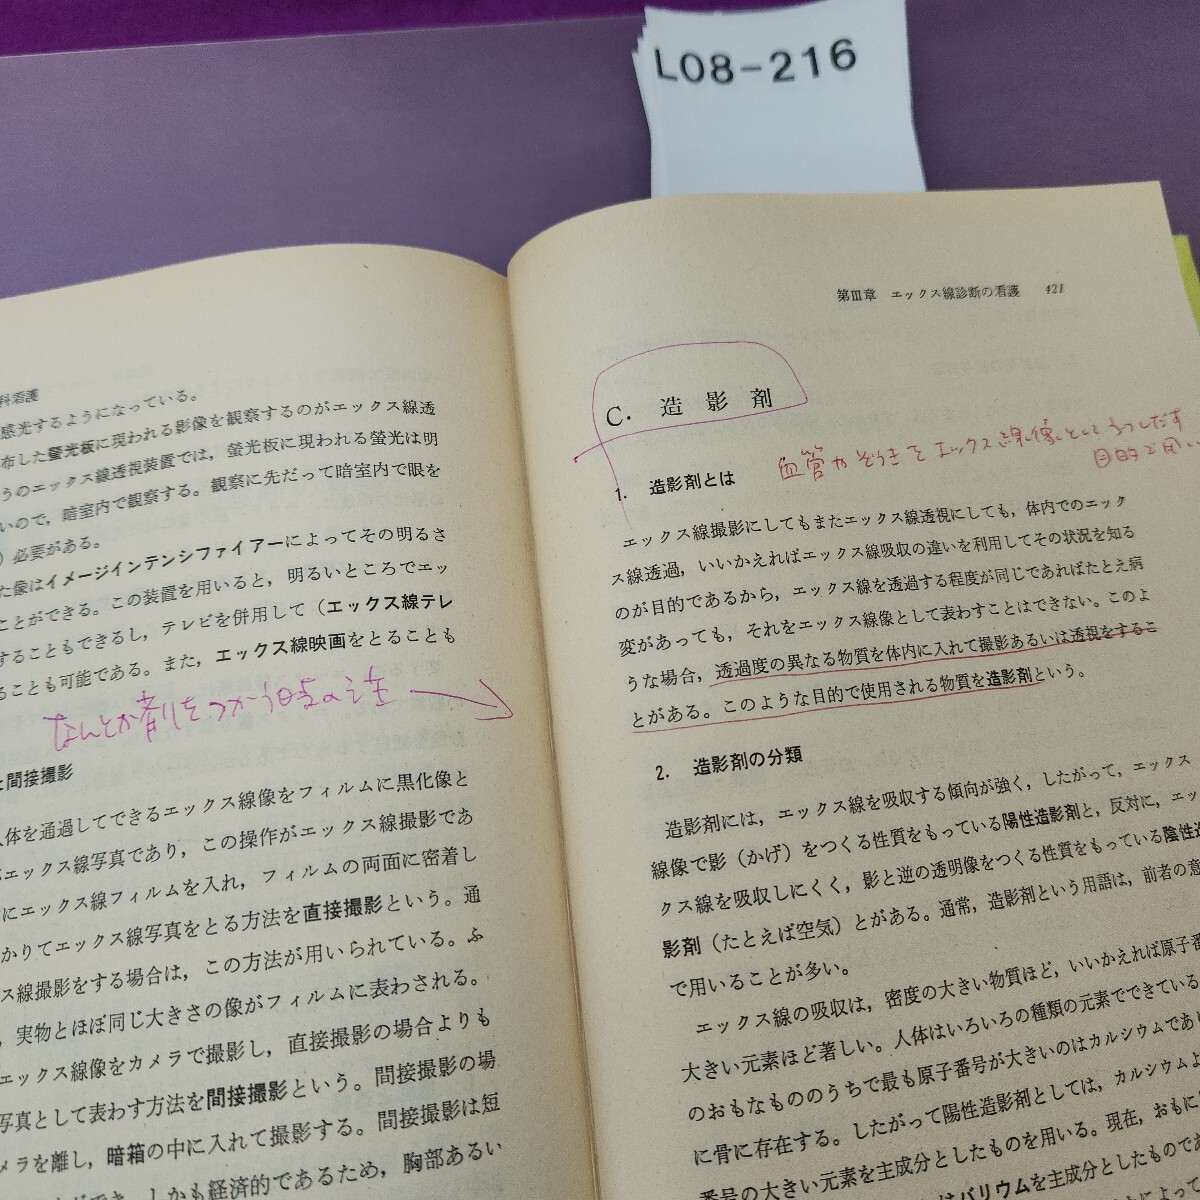 L08-216
科看護
感光するようになっている。
布した螢光板に現われる影像を観察するのがエックス線透
うのエックス線透視装置では，螢光板に現われる螢光は明
いので，暗室内で観察する。観察に先だって暗室内で眼を
）必要がある。
た像はイメージインテンシファイアーによってその明るさ
ことができる。この装置を用いると，明るいところでエッ
することもできるし，テレビを併用して（エックス線テレ
ることも可能である。また，エックス線映画をとることも
なんとか剤をつかう時の注
と間接撮影
人体を通過してできるエックス線像をフィルムに黒化像と
がエックス線写真であり，この操作がエックス線撮影であ
にエックス線フィルムを入れ，フィルムの両面に密着し
かりてエックス線写真をとる方法を直接撮影という。通
ス線撮影をする場合は，この方法が用いられている。ふ
，実物とほぼ同じ大きさの像がフィルムに表わされる。
エックス線像をカメラで撮影し，直接撮影の場合よりも
写真として表わす方法を間接撮影という。間接撮影の場
メラを離し，暗箱の中に入れて撮影する。間接撮影は短
でき，しかも経済的であるため，胸部あるい
第Ⅲ章 エックス線診断の看護 421
C. 造影剤
血管やぞうきをエックス線像としてうつしだす
目的で用い
1. 造影剤とは
エックス線撮影にしてもまたエックス線透視にしても，体内でのエック
ス線透過，いいかえればエックス線吸収の違いを利用してその状況を知る
のが目的であるから，エックス線を透過する程度が同じであればたとえ病
変があっても，それをエックス線像として表わすことはできない。このよ
うな場合，透過度の異なる物質を体内に入れて撮影あるいは透視をするこ
とがある。このような目的で使用される物質を造影剤という。
2. 造影剤の分類
造影剤には，エックス線を吸収する傾向が強く，したがって，エックス
線像で影（かげ）をつくる性質をもっている陽性造影剤と，反対に，エッ
クス線を吸収しにくく，影と逆の透明像をつくる性質をもっている陰性造
影剤（たとえば空気）とがある。通常，造影剤という用語は，前者の意
で用いることが多い。
エックス線の吸収は，密度の大きい物質ほど，いいかえれば原子番
大きい元素ほど著しい。人体はいろいろの種類の元素でできている
のおもなもののうちで最も原子番号が大きいのはカルシウムであり
に骨に存在する。したがって陽性造影剤としては，カルシウムよ
番号の大きい元素を主成分としたものを用いる。現在，おもに
はバリウムを主成分としたものであ
によって